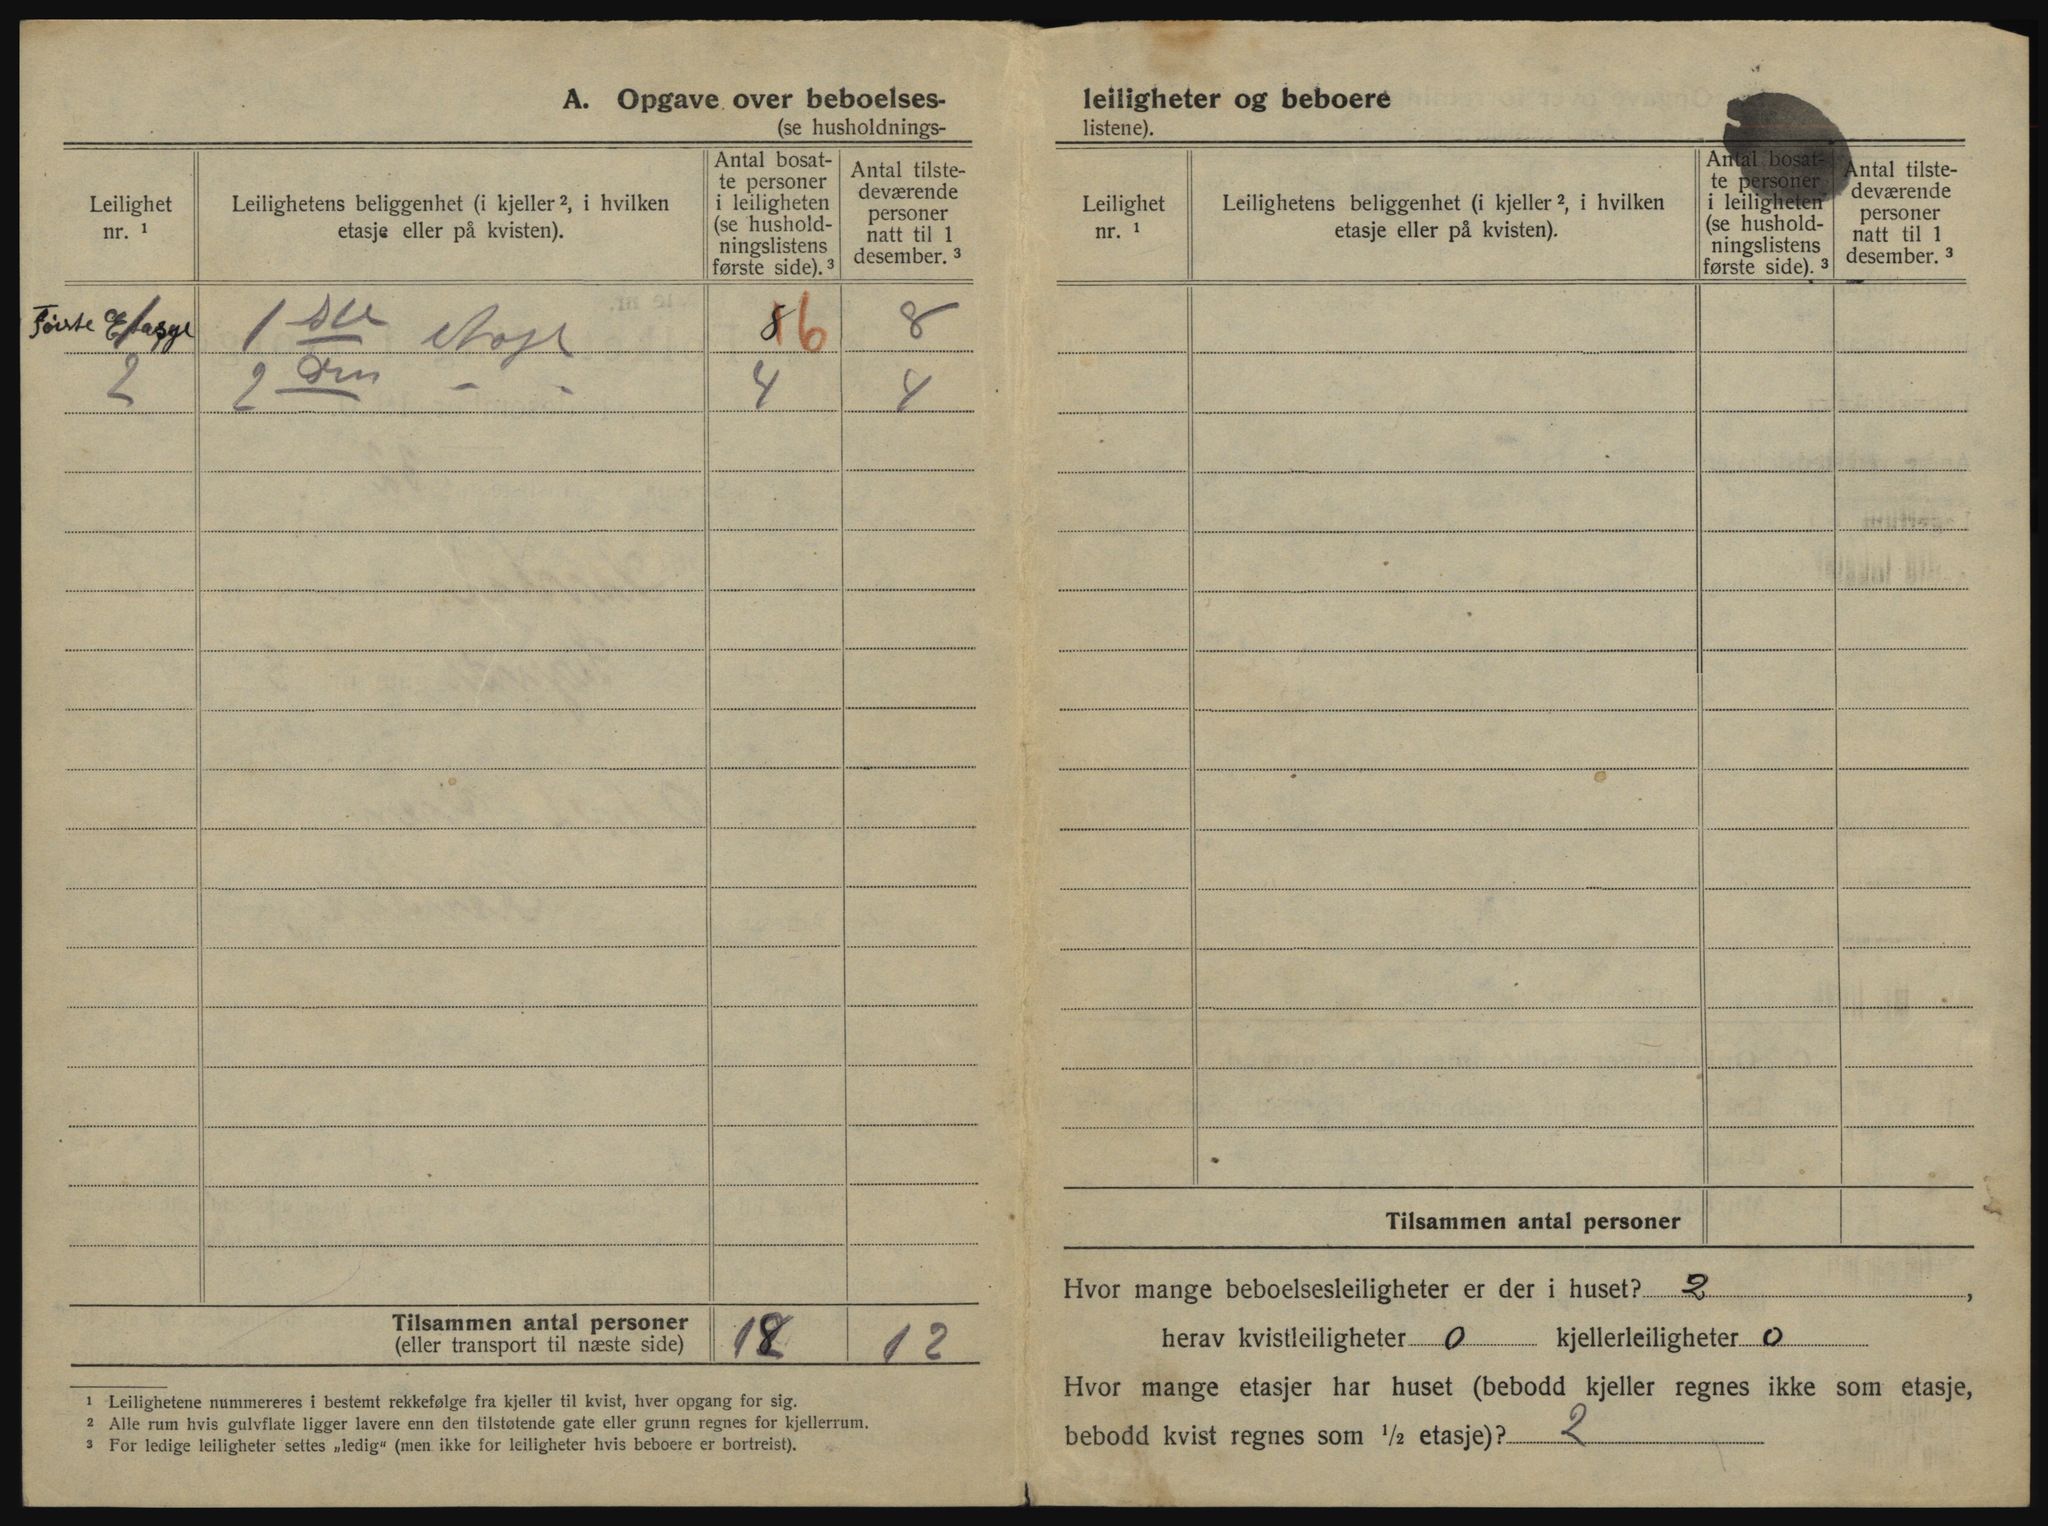 A. Opgave over beboelses-
(se husholdnings-
Leilighet
nr. ¹
Leilighetens beliggenhet (i kjeller ², i hvilken
etasje eller på kvisten).
Antal bosat-
te personer
i leiligheten
(se hushold-
ningslistens
første side). ³
Antal tilste-
deværende
personer
natt til 1
desember. ³
Første Etasge 1 1 ste etage 8 16 8
2 2 den - - 4 4
Tilsammen antal personer
(eller transport til næste side) 12 12
¹ Leilighetene nummereres i bestemt rekkefølge fra kjeller til kvist, hver opgang for sig.
² Alle rum hvis gulvflate ligger lavere enn den tilstøtende gate eller grunn regnes for kjellerrum.
³ For ledige leiligheter settes „ledig“ (men ikke for leiligheter hvis beboere er bortreist).
leiligheter og beboere
listene).
Leilighet
nr. ¹
Leilighetens beliggenhet (i kjeller ², i hvilken
etasje eller på kvisten).
Antal bosat-
te personer
i leiligheten
(se hushold-
ningslistens
første side). ³
Antal tilste-
deværende
personer
natt til 1
desember. ³
Tilsammen antal personer
Hvor mange beboelsesleiligheter er der i huset? 2,
herav kvistleiligheter 0 kjellerleiligheter 0
Hvor mange etasjer har huset (bebodd kjeller regnes ikke som etasje,
bebodd kvist regnes som ½ etasje)? 2